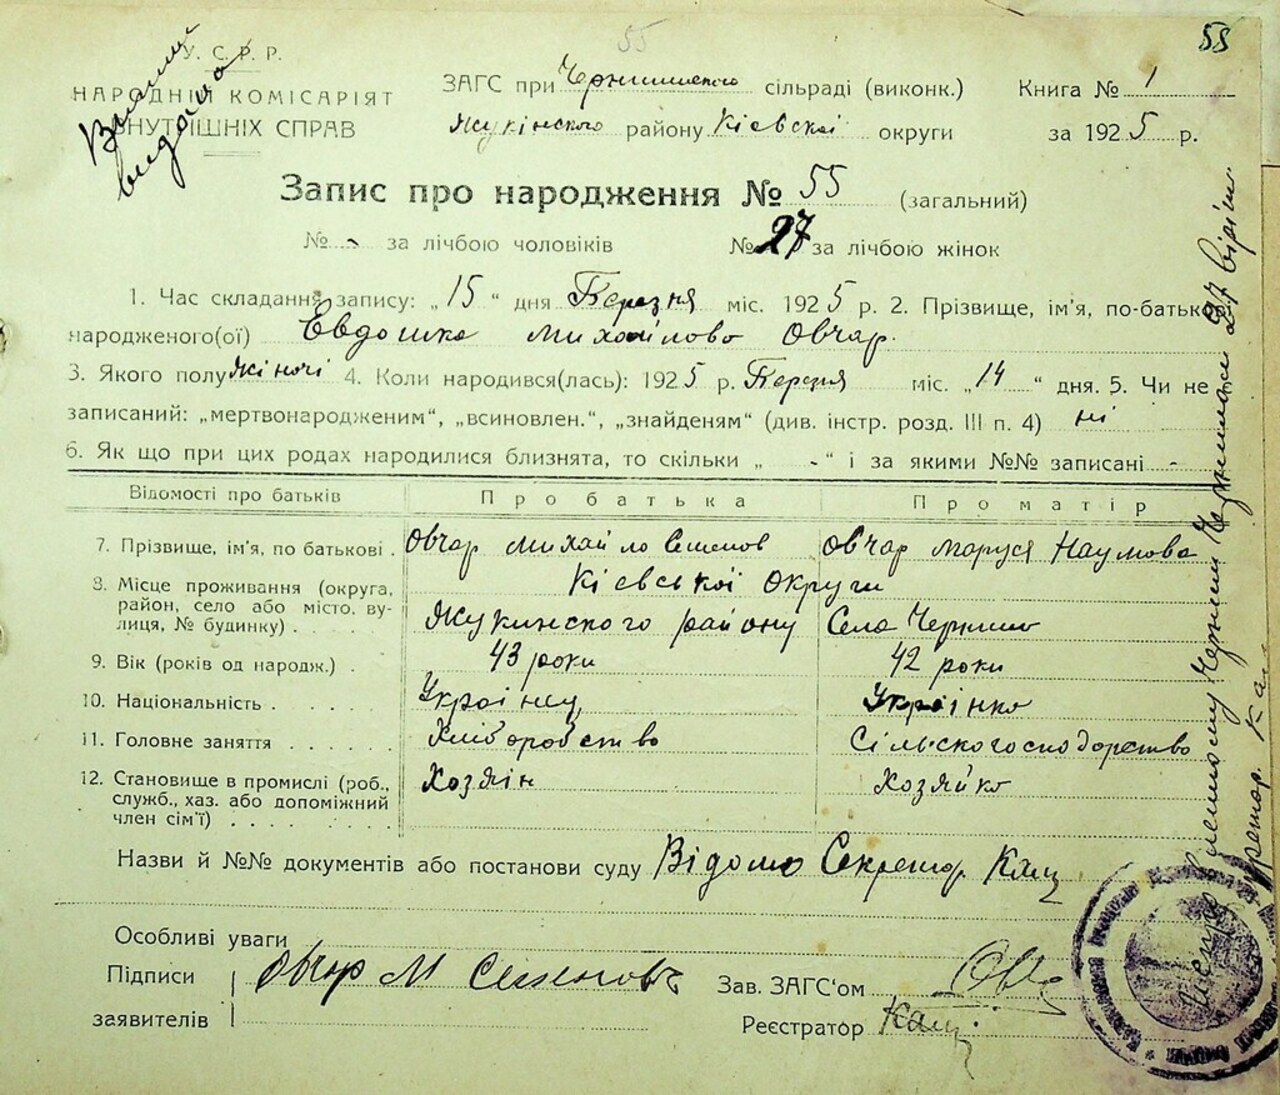 55
58
У. С. Р. Р.
НАРОДНІЙ КОМІСАРІЯТ
ВНУТРІШНІХ СПРАВ
видана
ЗАГС при сільраді (виконк.) Книга № 1
Жукінского району Кіевскоі округи за 1925 р.
Запис про народження № 55 (загальний)
№ - за лічбою чоловіків № 27 за лічбою жінок
1. Час складання запису: „15“ дня Березня міс. 1925 р. 2. Прізвище, ім'я, по-батькові
народженого(ої) Евдошка Михайлово Овчар.
3. Якого полу жіночі 4. Коли народився(лась): 1925 р. Березня міс. „14“ дня. 5. Чи не
записаний: „мертвонародженим“, „всиновлен.“, „знайденям“ (див. інстр. розд. III п. 4) ні
6. Як що при цих родах народилися близнята, то скільки „ - “ і за якими №№ записані -
Відомості про батьків Про батька Про матір
7. Прізвище, ім'я, по батькові . Овчар Михайло Семенов Овчар Маруся Наумова
8. Місце проживання (округа, Кіевськоі Округи
район, село або місто, ву-
лиця, № будинку) . . . . . Жукинского району Села Чернино
9. Вік (років од народж.) . 43 роки 42 роки
10. Національність . . . . . Украінец Украінко
11. Головне заняття . . . . . . Хліборобство Сільскогосподорство
12. Становище в промислі (роб., Хозяін Хозяйко
служб., хаз. або допоміжний
член сім'ї) . . . . . . . . .
Назви й №№ документів або постанови суду Відомо Секретор Кащ
Особливі уваги
Підписи Овчар М Семеновъ Зав. ЗАГС'ом
заявителів Реєстратор Кащ.